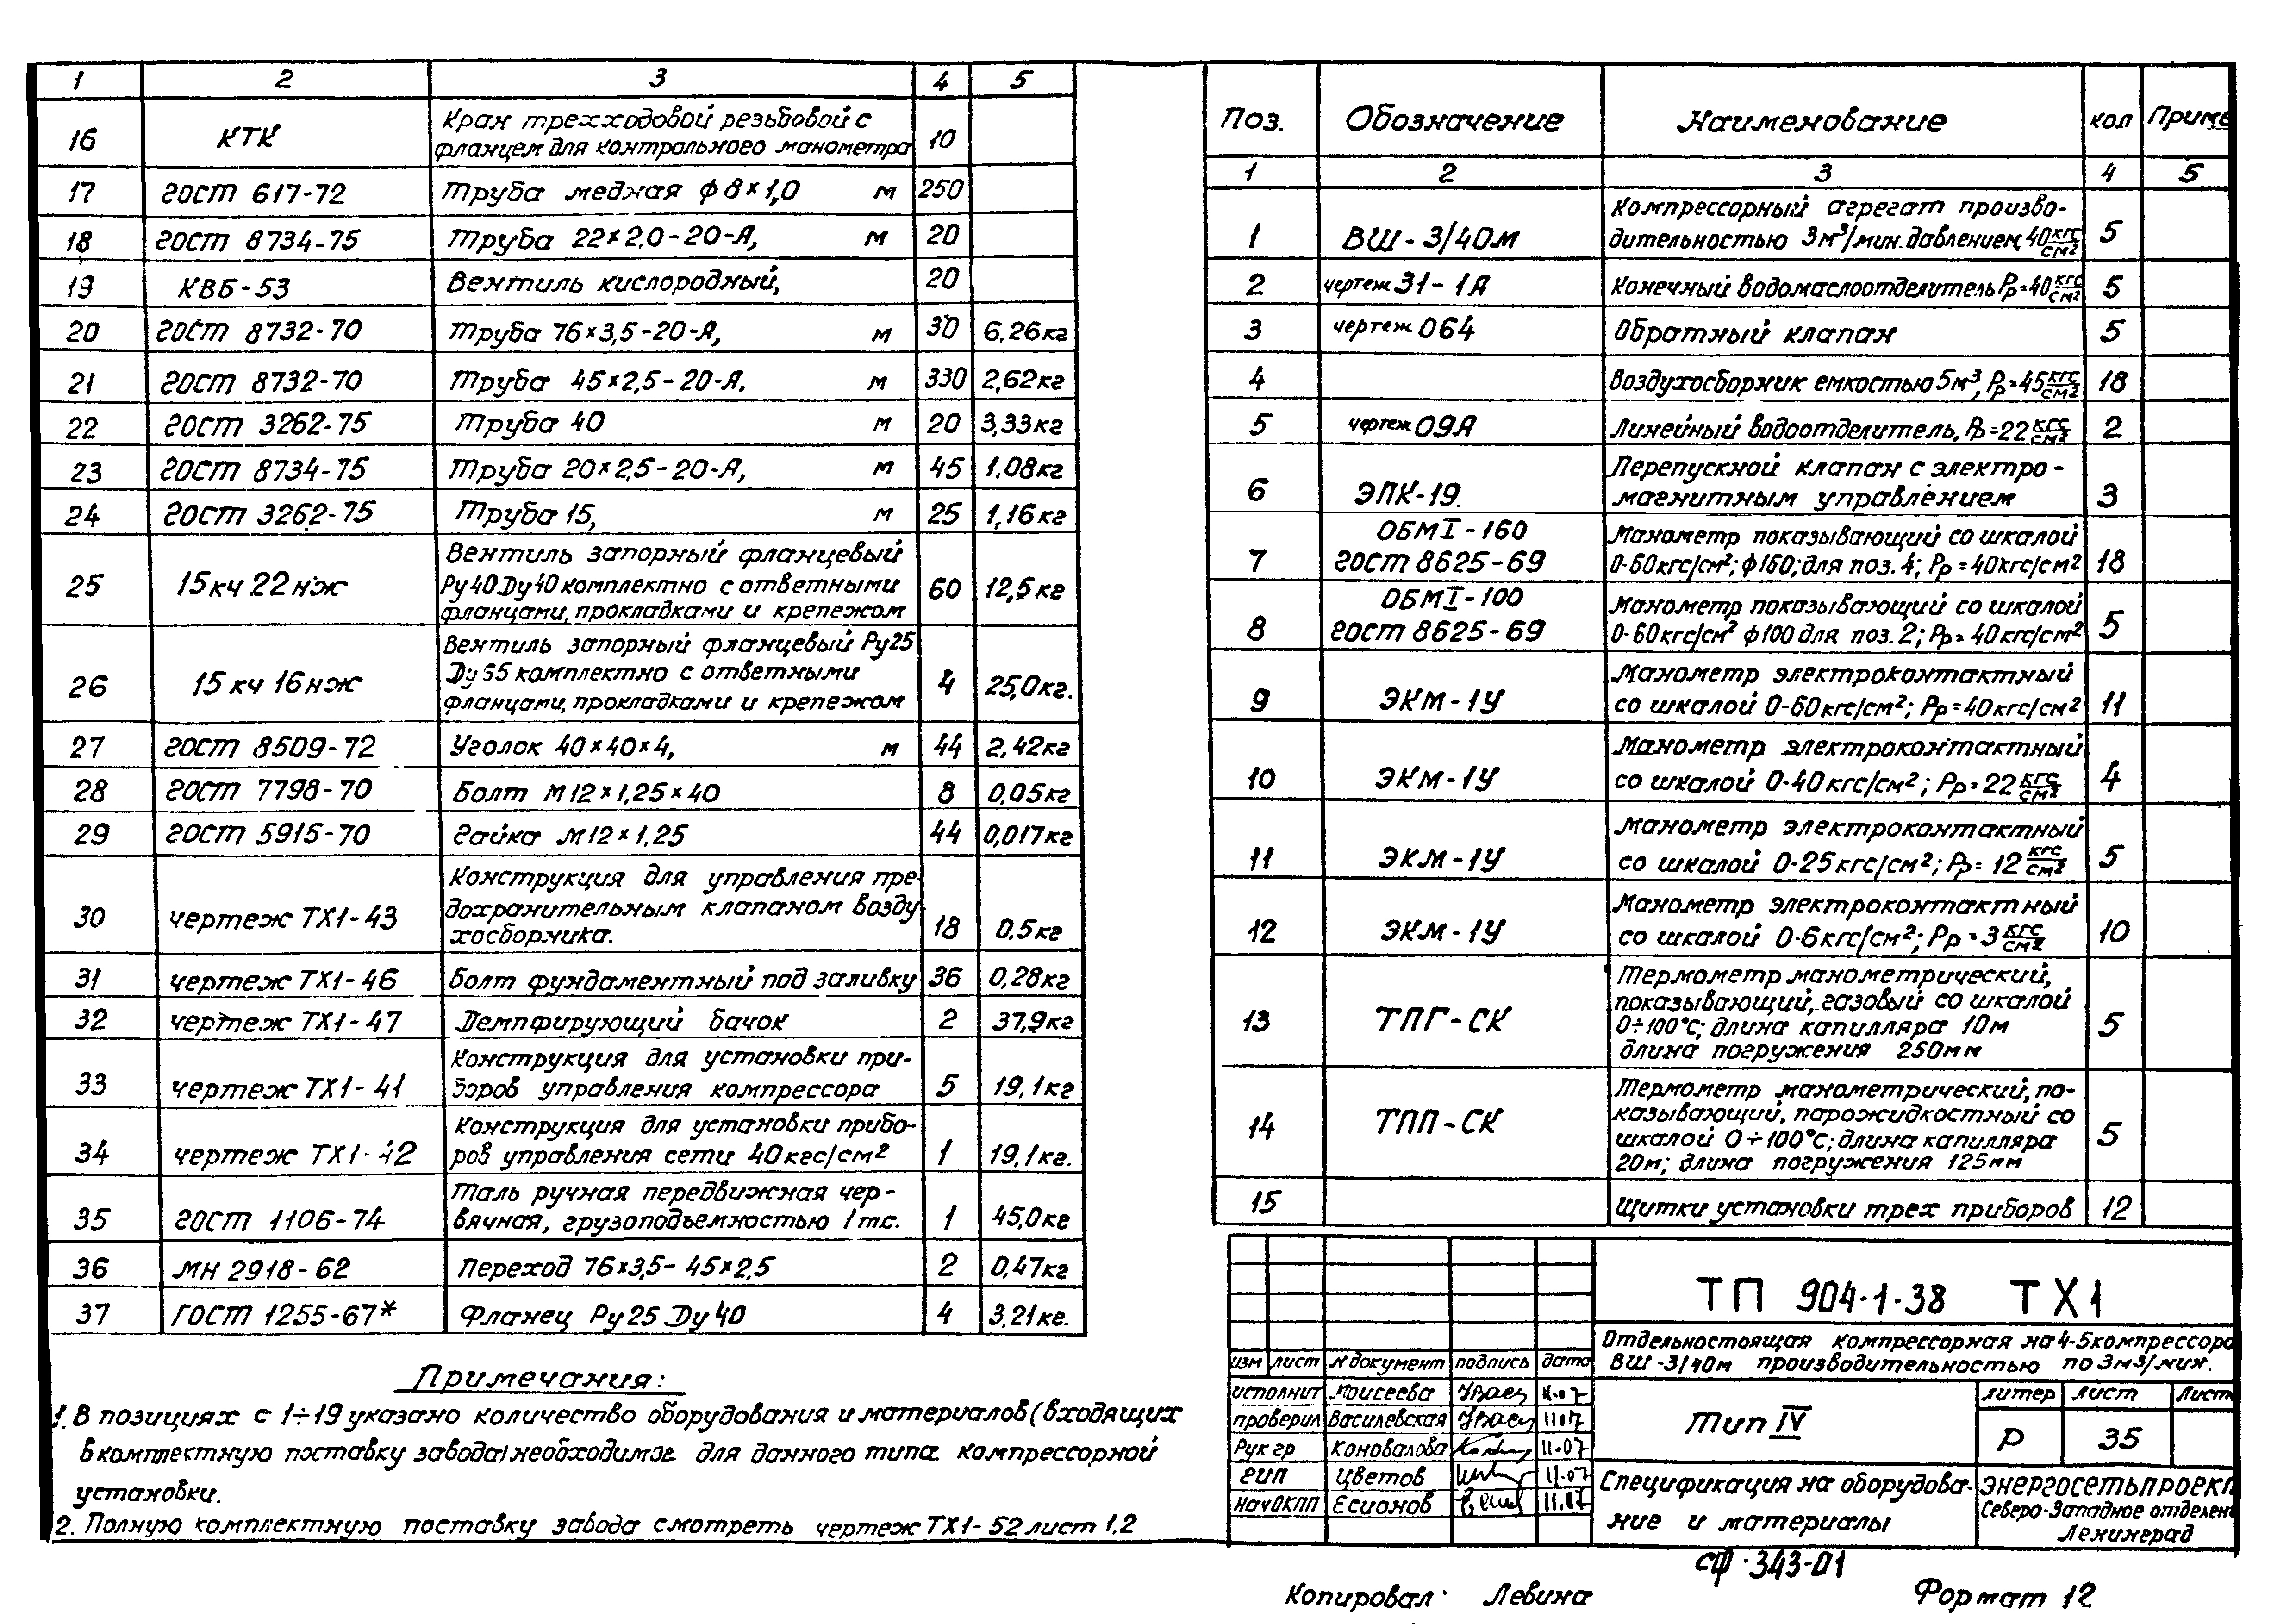 1 2 3 4 5
16 КТК Кран трехходовой резьбовой с
фланцем для контрольного манометра 10
17 ГОСТ 617-72 Труба медная ф 8×1,0 м 250
18 ГОСТ 8734-75 Труба 22×2,0-20-А, м 20
19 КВБ-53 Вентиль кислородный, 20
20 ГОСТ 8732-70 Труба 76×3,5-20-А, м 30 6,26кг
21 ГОСТ 8732-70 Труба 45×2,5-20-А. м 330 2,62кг
22 ГОСТ 3262-75 Труба 40 м 20 3,33кг
23 ГОСТ 8734-75 Труба 20×2,5-20-А, м 45 1,08кг
24 ГОСТ 3262-75 Труба 15, м 25 1,16кг
25 15кч 22нж Вентиль запорный фланцевый
Ру40 Ду40 комплектно с ответными
фланцами, прокладками и крепежом 60 12,5кг
26 15кч 16нж Вентиль запорный фланцевый Ру25
Ду 65 комплектно с ответными
фланцами, прокладками и крепежом 4 25,0кг.
27 ГОСТ 8509-72 Уголок 40×40×4, м 44 2,42кг
28 ГОСТ 7798-70 Болт М12×1,25×40 8 0,05кг
29 ГОСТ 5915-70 Гайка М12×1,25 44 0,017кг
30 чертеж ТХ1-43 Конструкция для управления пре-
дохранительным клапаном возду-
хосборника. 18 0,5кг
31 чертеж ТХ1-46 Болт фундаментный под заливку 36 0,28кг
32 чертеж ТХ1-47 Демпфирующий бачок 2 37,9кг
33 чертеж ТХ1-41 Конструкция для установки при-
боров управления компрессора 5 19,1кг
34 чертеж ТХ1-42 Конструкция для установки прибо-
ров управления сети 40кгс/см² 1 19,1кг.
35 ГОСТ 1106-74 Таль ручная передвижная чер-
вячная, грузоподъемностью 1тс. 1 45,0кг
36 МН 2918-62 Переход 76×3,5-45×2,5 2 0,47кг
37 ГОСТ 1255-67* Фланец Ру25 Ду40 4 3,21кг.
Примечания:
1. В позициях с 1÷19 указано количество оборудования и материалов (входящих
в комплектную поставку завода) необходимое для данного типа компрессорной
установки.
2. Полную комплектную поставку завода смотреть чертеж ТХ1-52 лист 1,2
Поз. Обозначение Наименование кол Приме
1 2 3 4 5
1 ВШ-3/40м Компрессорный агрегат произво-
дительностью 3м³/мин. давлением 40 кгс/см² 5
2 чертеж 31-1А Конечный водомаслоотделитель Рр=40 кгс/см² 5
3 чертеж 064 Обратный клапан 5
4 Воздухосборник емкостью 5м³, Рр=45 кгс/см² 18
5 чертеж 09А Линейный водоотделитель, Рр=22 кгс/см² 2
6 ЭПК-19. Перепускной клапан с электро-
магнитным управлением 3
7 ОБМ I-160
ГОСТ 8625-69 Манометр показывающий со шкалой
0-60кгс/см²; ф160; для поз. 4; Рр=40кгс/см² 18
8 ОБМ I-100
ГОСТ 8625-69 Манометр показывающий со шкалой
0-60кгс/см² ф100 для поз. 2; Рр=40кгс/см² 5
9 ЭКМ-1У Манометр электроконтактный
со шкалой 0-60кгс/см²; Рр=40кгс/см² 11
10 ЭКМ-1У Манометр электроконтактный
со шкалой 0-40кгс/см²; Рр=22 кгс/см² 4
11 ЭКМ-1У Манометр электроконтактный
со шкалой 0-25кгс/см²; Рр=12 кгс/см² 5
12 ЭКМ-1У Манометр электроконтактный
со шкалой 0-6кгс/см²; Рр=3 кгс/см² 10
13 ТПГ-СК Термометр манометрический,
показывающий, газовый со шкалой
0÷100°С; длина капилляра 10м
длина погружения 250мм 5
14 ТПП-СК Термометр манометрический, по-
казывающий, парожидкостный со
шкалой 0÷100°С; длина капилляра
20м; длина погружения 125мм 5
15 Щитки установки трех приборов 12
ТП 904-1-38 ТХ1
Отдельностоящая компрессорная на 4-5 компрессоро
ВШ-3/40м производительностью по 3м³/мин.
изм лист N документ подпись дата
исполнит Моисеева 11.07
проверил Василевская 11.07
Рук гр Коновалова 11.07
ГИП Цветов 11.07
нач ОКПП Есионов 11.07
Тип IV
литер лист Лист
Р 35
Спецификация на оборудова-
ние и материалы
Энергосетьпроект
Северо-Западное отделен
Ленинград
СФ·343-01
Копировал: Левина Формат 12